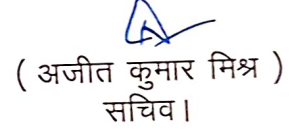 ( अजीत कुमार मिश्र )
सचिव।